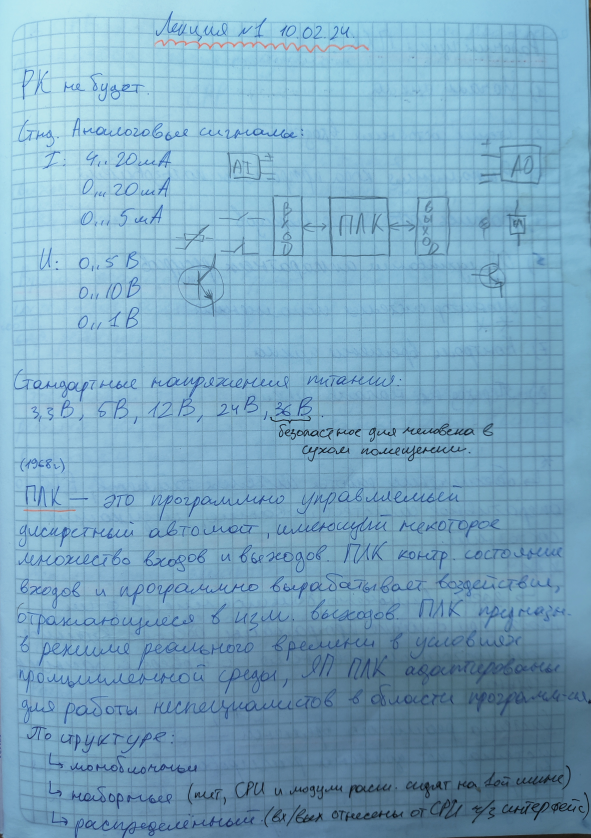 Лекция №1 10.02.24.
РК не будет.
Стнд. Аналоговые сигналы:
I: 4,..20мА
0,..20мА
0,..5мА
U: 0,..5В
0,..10В
0,..1В
AI
ВХОД
ПЛК
ВЫХОД
AO
Стандартные напряжения питания:
3,3В, 5В, 12В, 24В, 36В.
безопастное для человека в
сухом помещении.
(1968г)
ПЛК — это программно управляемый
дискретный автомат, имеющий некоторое
множество входов и выходов. ПЛК контр. состояние
входов и программно вырабатывает воздействие,
отражающиеся в изм. выходов. ПЛК предназн.
в режиме реального времени в условиях
промышленной среды, ЯП ПЛК адаптированы
для работы неспециалистов в области программ-ия.
По структуре:
↳ моноблочный
↳ наборные (пит, CPU и модули расш. сидят на 1ой шине)
↳ распределённый (вх/вых отнесены от CPU ч/з интерфейс)